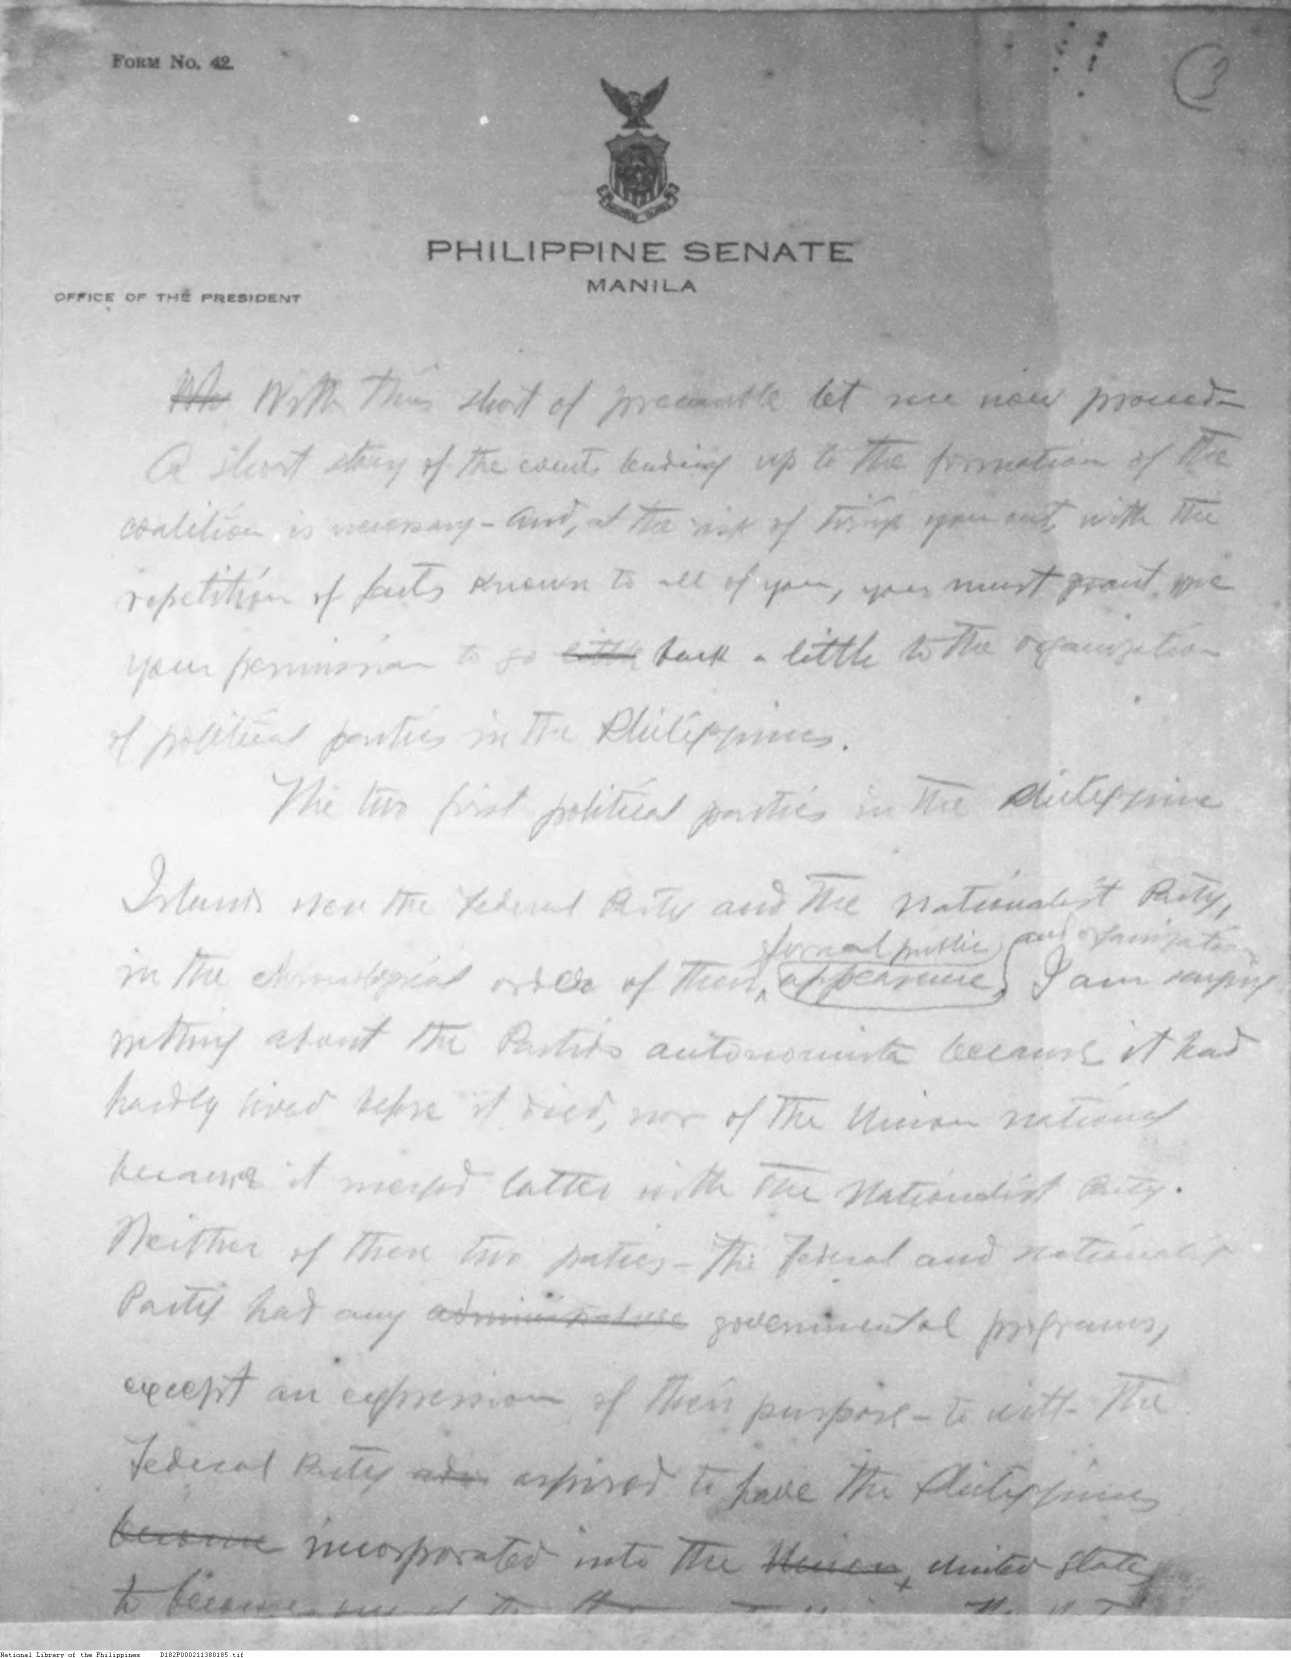 FORM No. 42.
PHILIPPINE SENATE
MANILA
OFFICE OF THE PRESIDENT
With this short of preamble let me now proceed—
A short story of the events leading up to the formation of the
coalition is necessary — and, at the risk of tiring you out with the
repetition of facts known to all of you, you must grant me
your permission to go little back a little to the organization
of political parties in the Philippines.
The two first political parties in the Philippine
Islands were the Federal Party and the Nationalist Party,
formal public and organization
in the chronological order of their appearance, I am saying
nothing about the Partido autonomista because it had
hardly lived before it died, nor of the Union national
because it merged latter with the Nationalist Party.
Neither of these two parties — the Federal and Nationalist
Party had any administrative governmental programs,
except an expression of their purpose — to witt — the
Federal Party aspired to have the Philippines
become incorporated into the Union, United States
to become
National Library of the Philippines D182P000211388185.tif